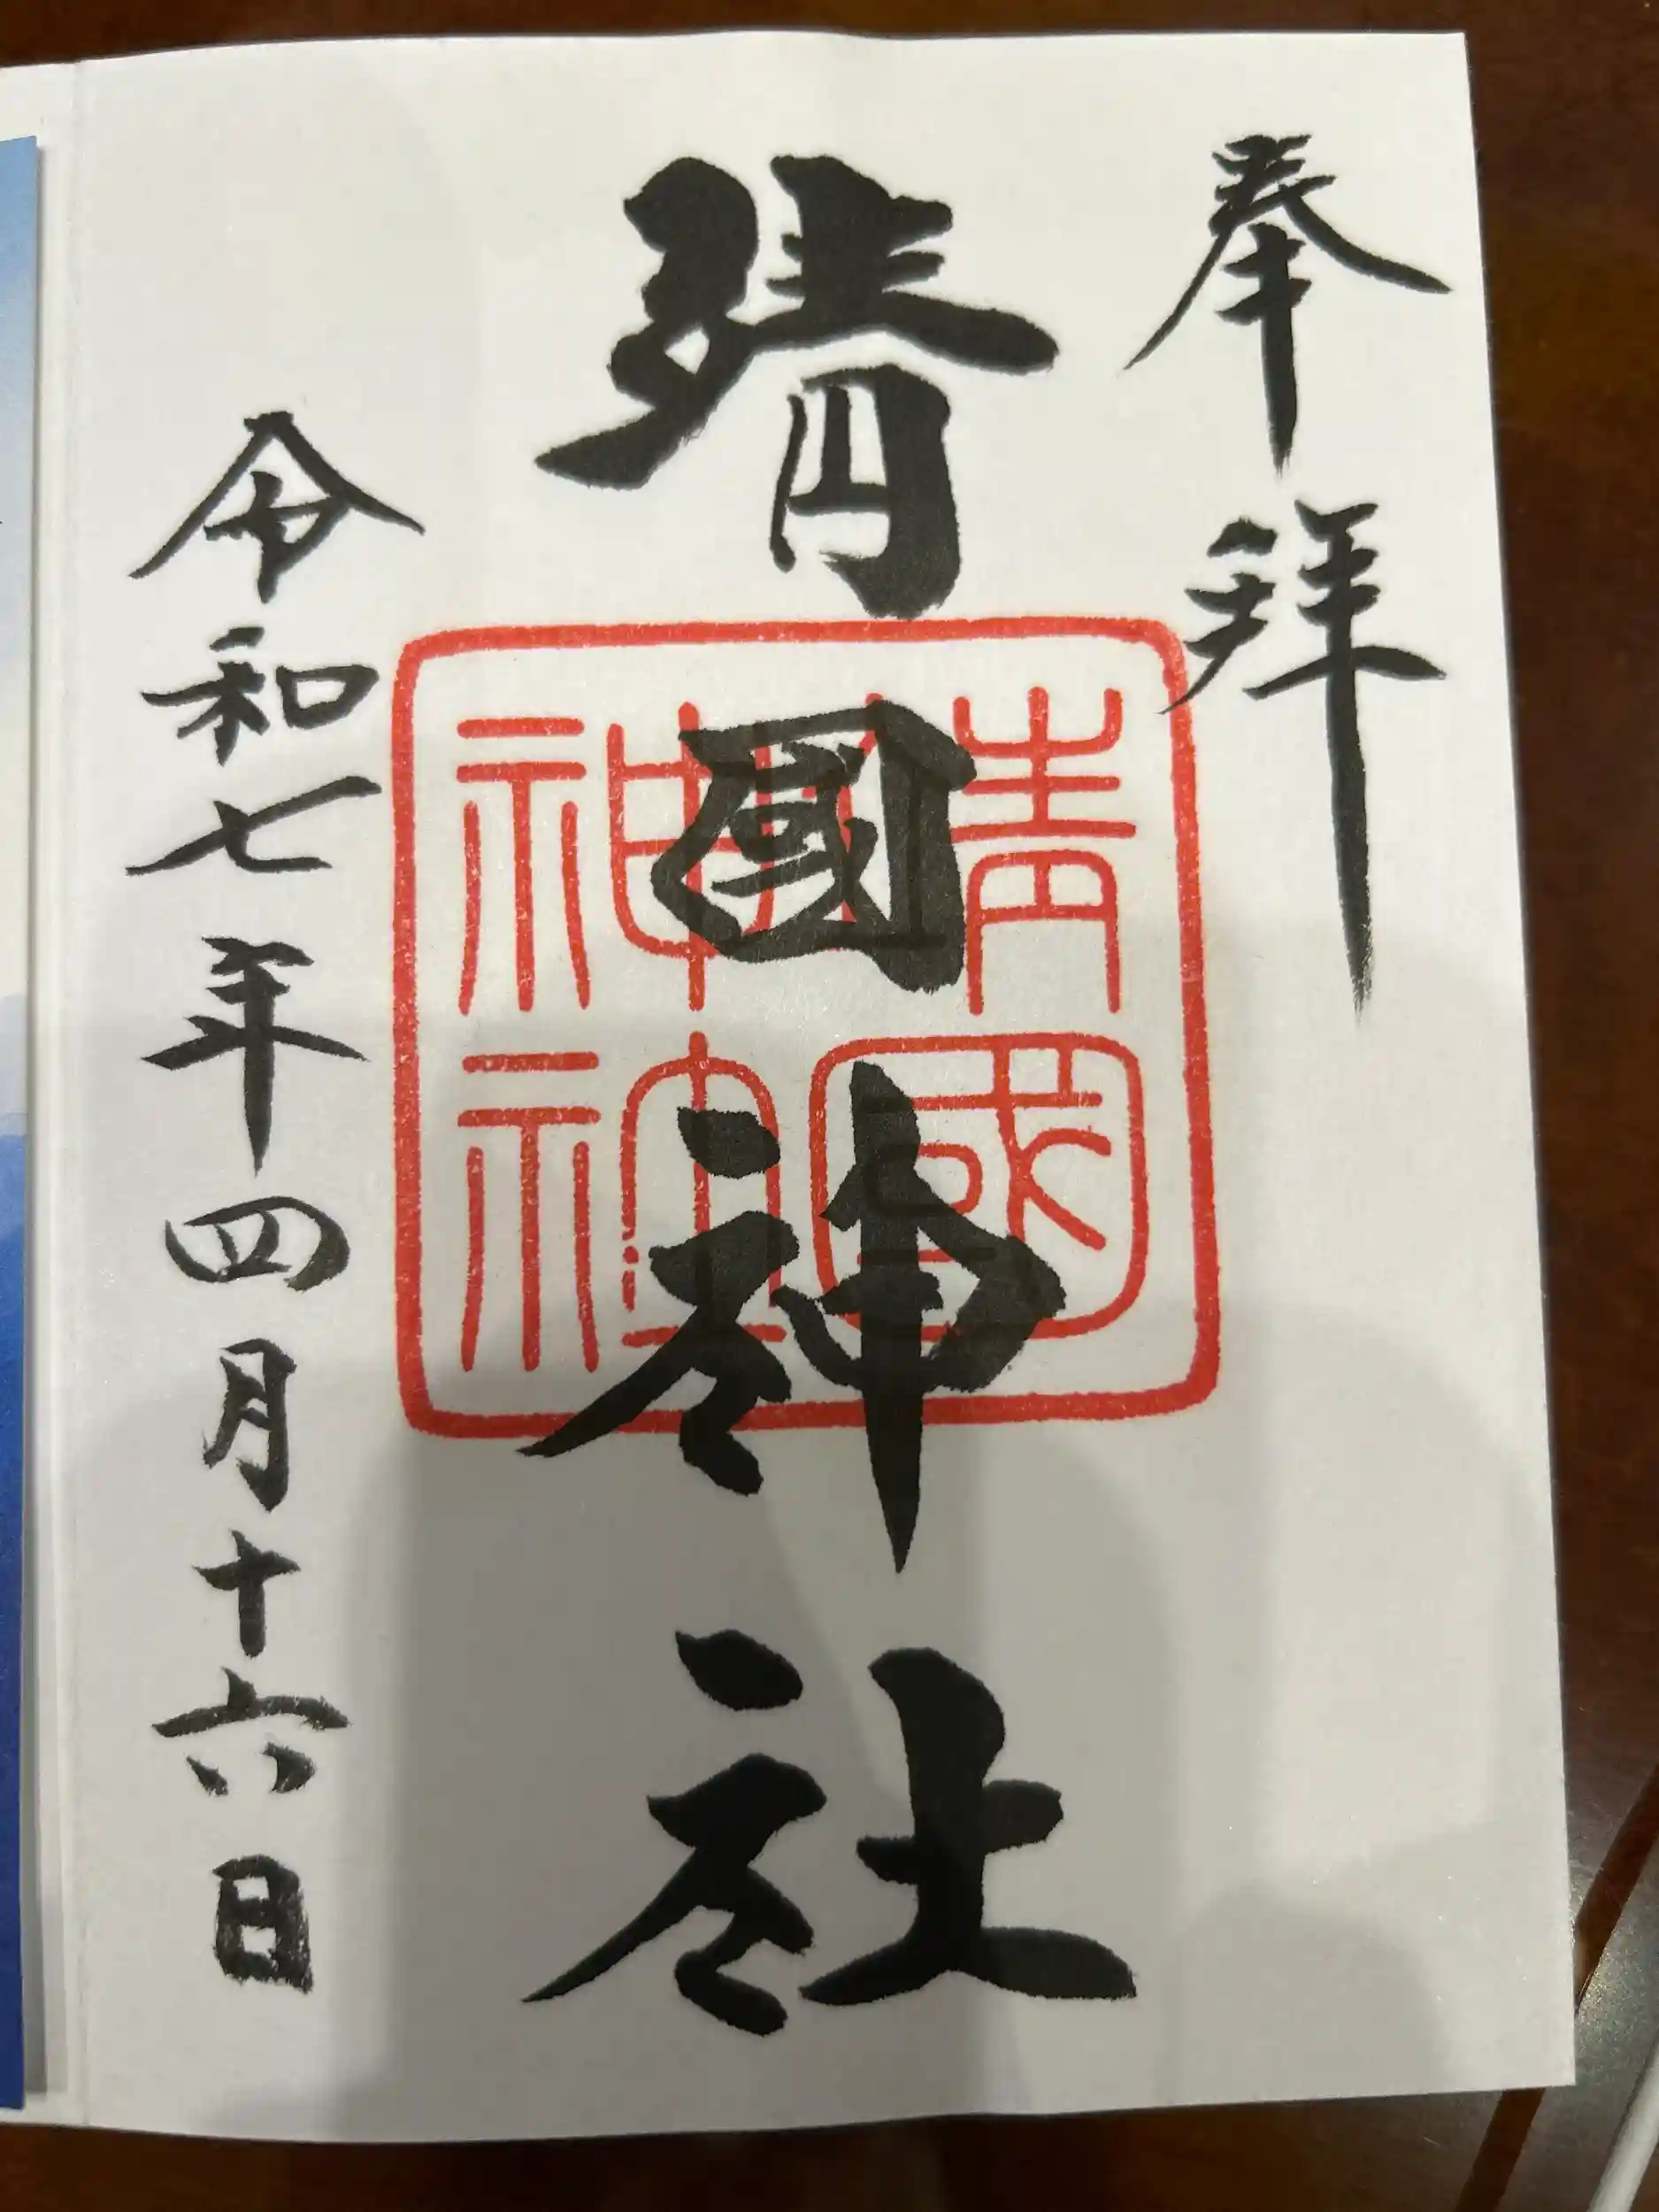 奉拝
靖國神社
令和七年四月十六日
靖國
神社